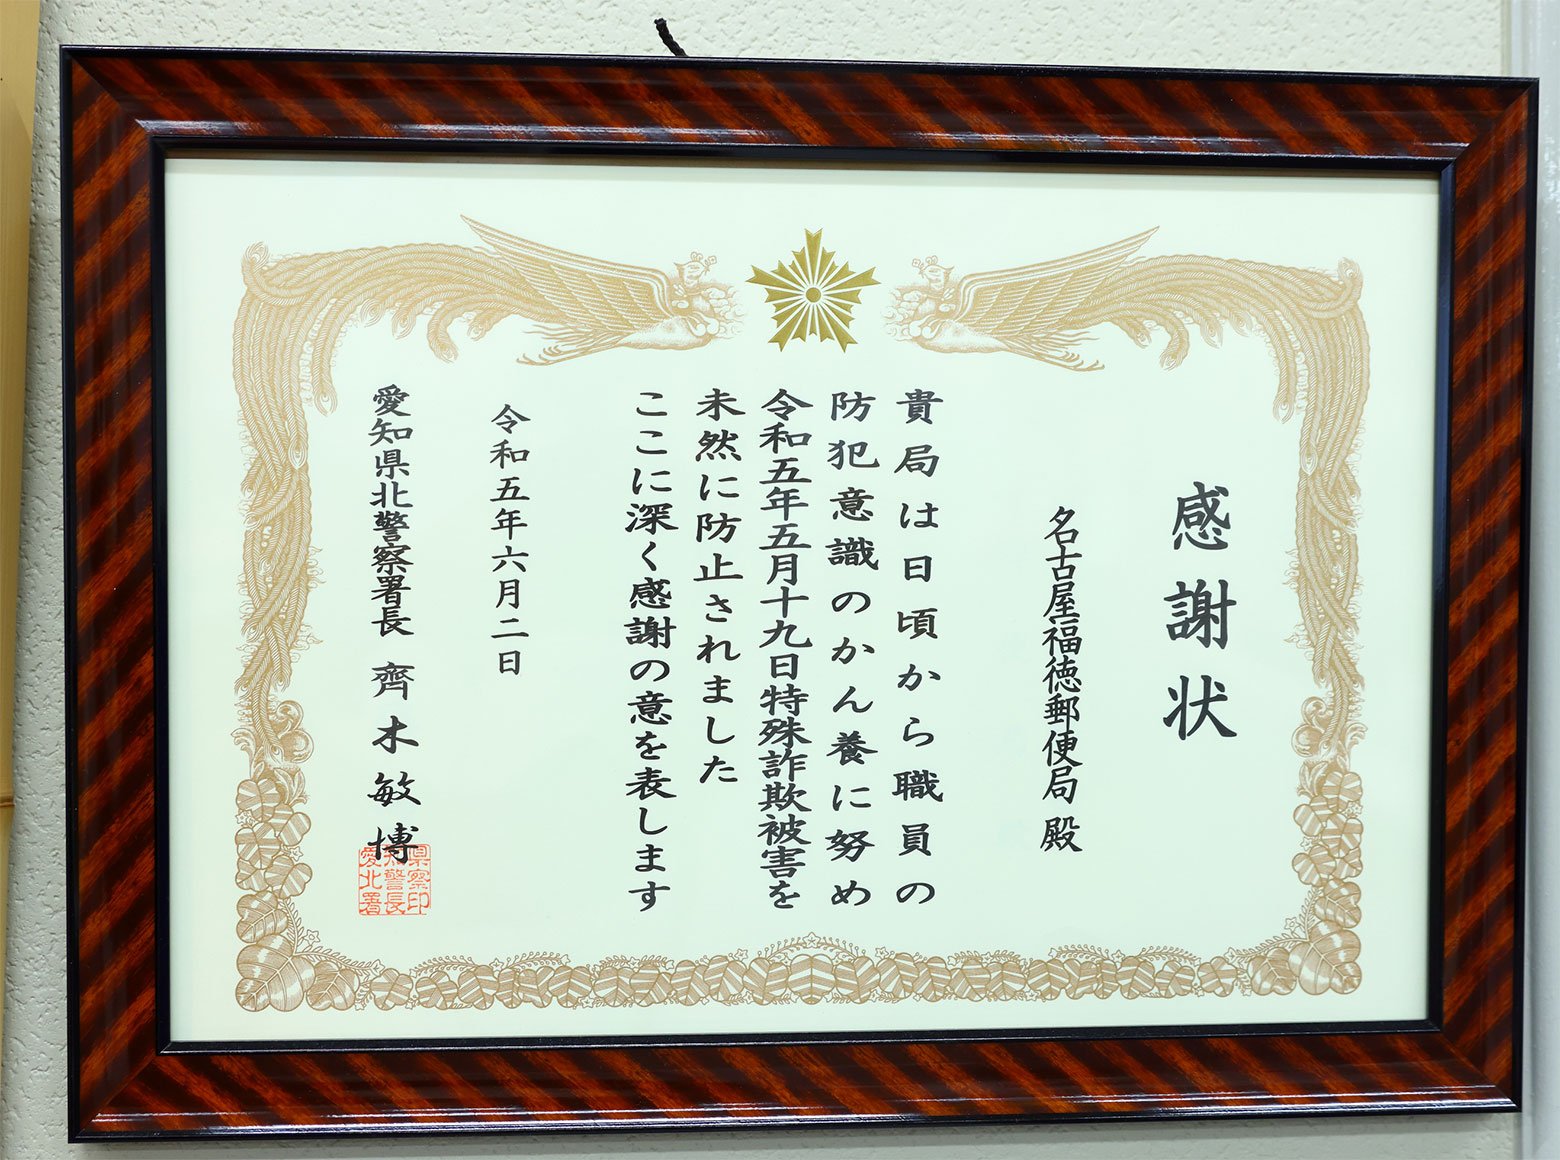 感謝状
名古屋福徳郵便局 殿
貴局は日頃から職員の
防犯意識のかん養に努め
令和五年五月十九日特殊詐欺被害を
未然に防止されました
ここに深く感謝の意を表します
令和五年六月二日
愛知県北警察署長 齊木敏博
県察印
知警長
愛北署